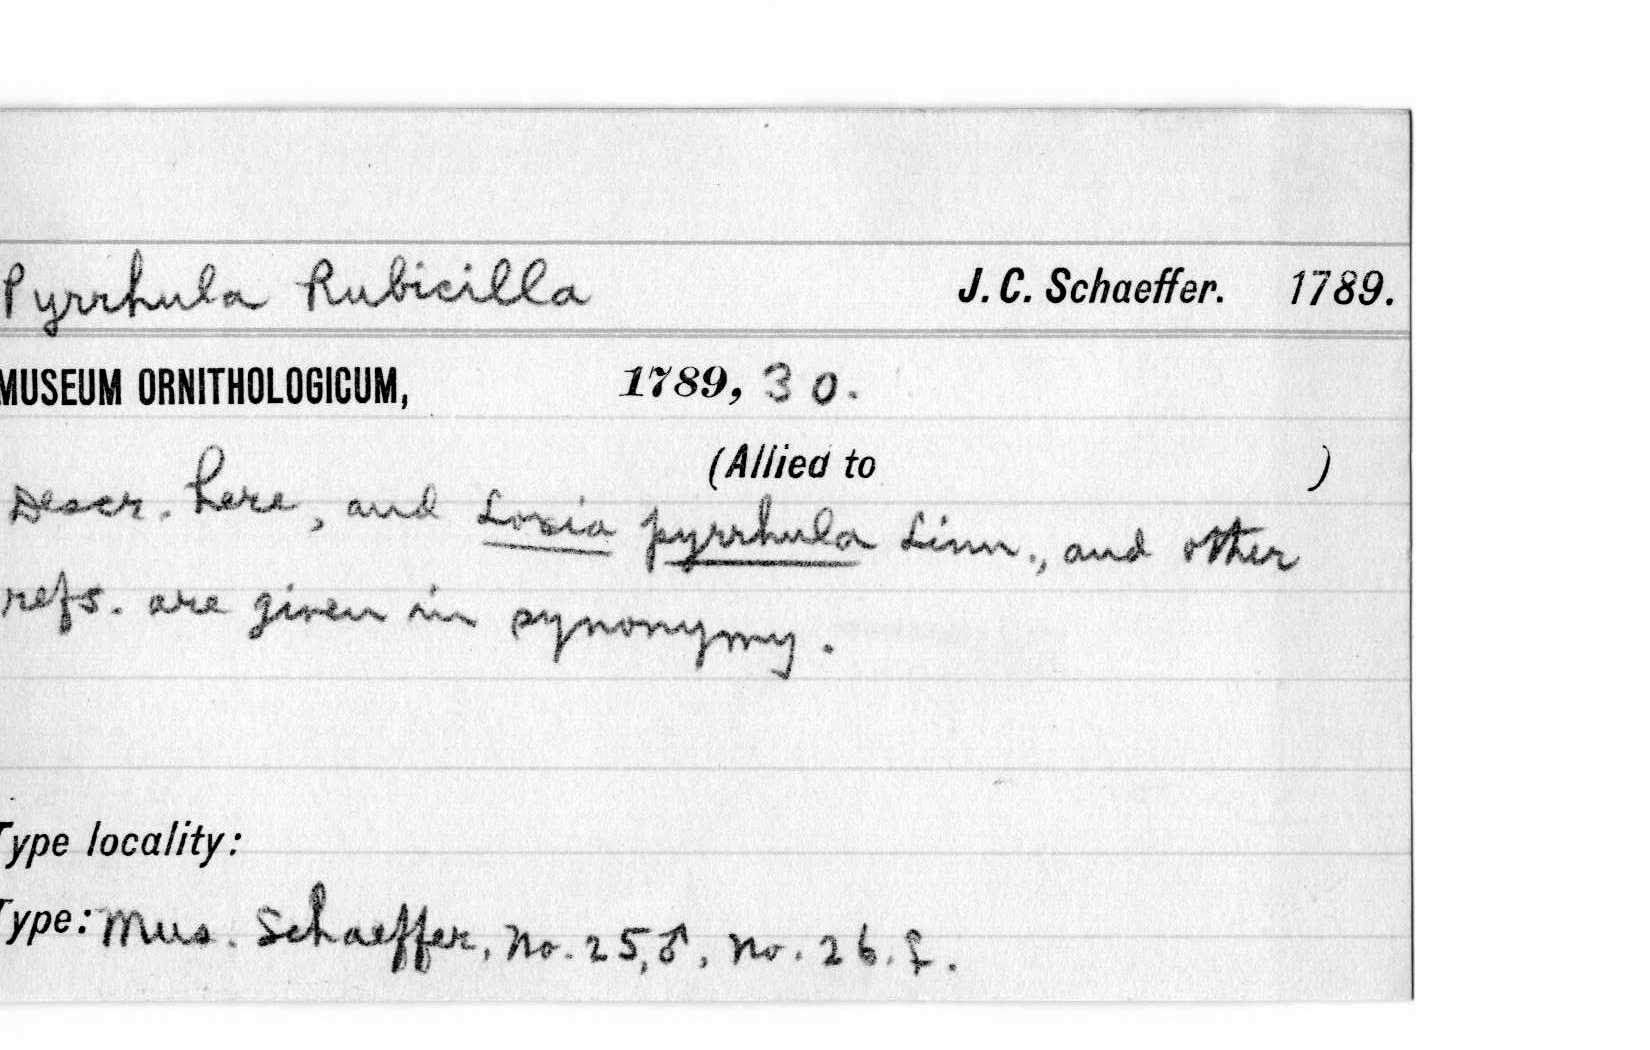 Pyrrhula Rubicilla J. C. Schaeffer. 1789.
MUSEUM ORNITHOLOGICUM, 1789, 30.
(Allied to )
Descr. here, and Loxia pyrrhula Linn., and other
refs. are given in synonymy.
Type locality:
Type: Mus. Schaeffer, No. 25, ♂, No. 26. ♀.